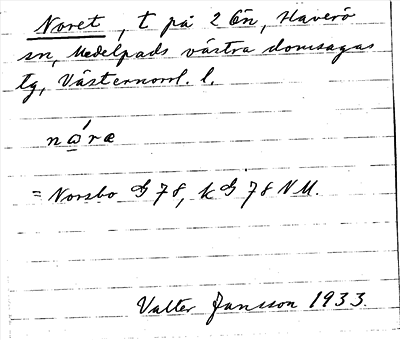 Noret, t på 2 En, Haverö
sn, Medelpads västra domsagas
tg, Västernorrl. l.
nǻræ
= Norsbo G 78, k G 78 NU.
Valter Jansson 1933.